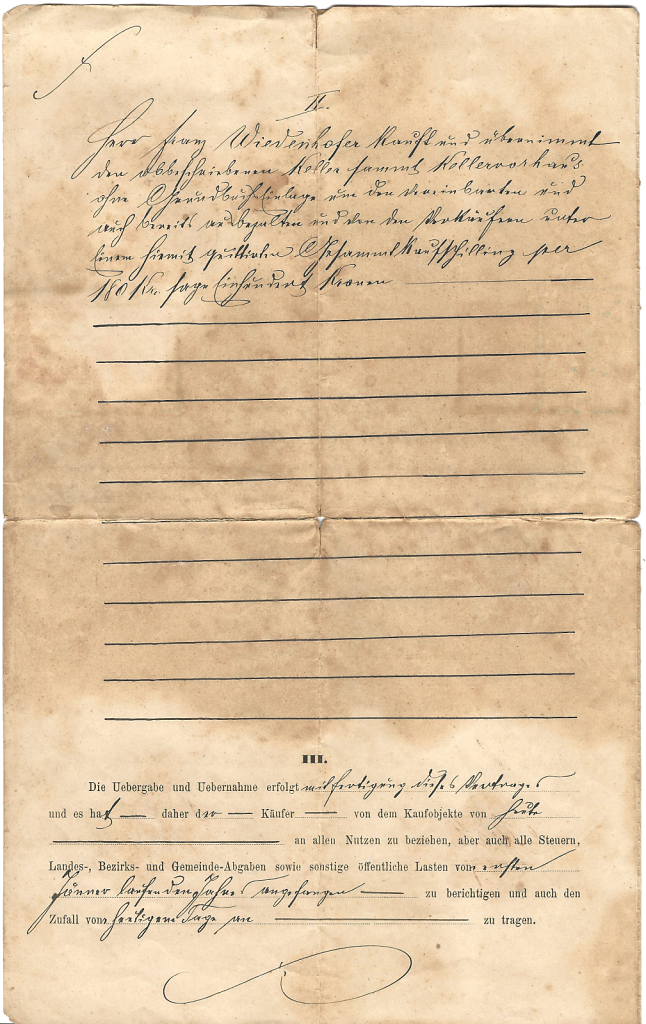 II.
Herr Franz Wiedenhofer kauft und übernimmt
den obbeschriebenen Keller sammt Kellervorhaus
ohne Grundbuchseinlage um den vereinbarten und
auch bereits anbezalten und von den Verkäufern unter
Einem hiemit quittirten Gesammtkaufschilling per
180 Kr. sage Einhundert Kronen
III.
Die Uebergabe und Uebernahme erfolgt mit Fertigung dieses Vertrages
und es hat daher der Käufer von dem Kaufobjekte von heute
an allen Nutzen zu beziehen, aber auch alle Steuern,
Landes-, Bezirks- und Gemeinde-Abgaben sowie sonstige öffentliche Lasten vom ersten
Jänner laufenden Jahres angefangen zu berichtigen und auch den
Zufall vom heutigen Tage an zu tragen.